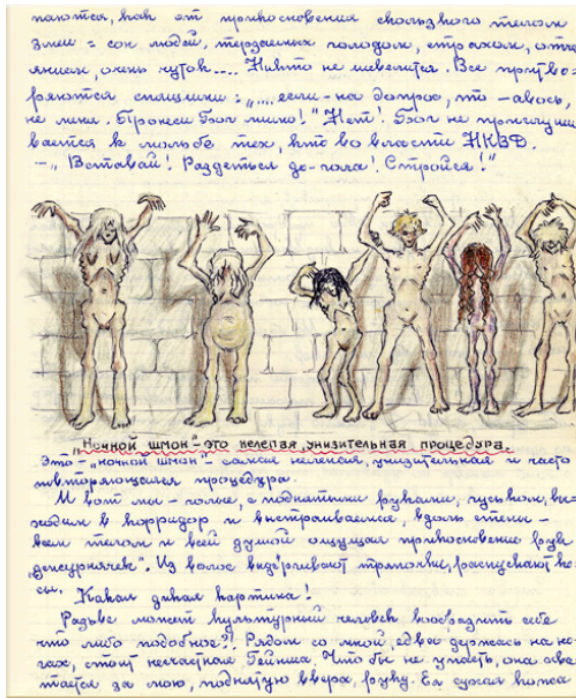 паются, как от прикосновения скользкого телом
змеи = сон людей, терзаемых голодом, страхом, отча
янием, очень чуток.... Никто не шевелится. Все притво-
ряются спящими: „....если-на допрос, то -авось,
не меня. Пронеси Бог мимо!" Нет! Бог не прислуши
вается к мольбе тех, кто во власти НКВД.
-„ Вставай! Раздеться до-гола! Стройся!"
„Ночной шмон"-это нелепая, унизительная процедура.
Это-„ночной шмон"- самая нелепая, унизительная и часто
повторяющаяся процедура.
И вот мы - голые, с поднятыми руками, гуськом, вы=
ходим в корридор и выстраиваемся, вдоль стены -
всем телом и всей душой ощущая прикосновение рук
„дежурнячек". Из волос выдёргивают тряпочки, распускают ко-
сы. Какая дикая картина!
Разве может культурный человек вообразить себе
что либо подобное?! Рядом со мной, едва держась на но-
гах, стоит несчастная Гейнша. Что бы не упасть, она хва
тается за мою, поднятую вверх, руку. Ея сухая кожа